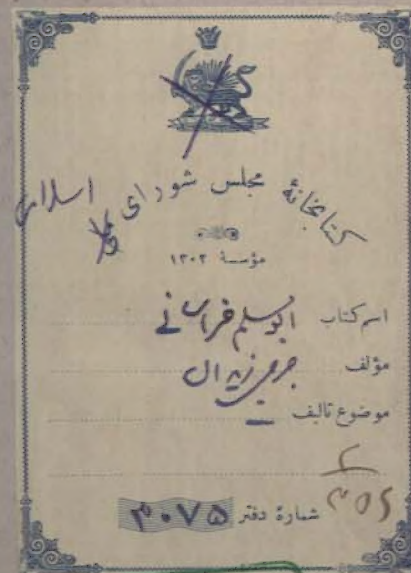 کتابخانهٔ مجلس شورای ملی اسلامی
مؤسسهٔ ۱۳۰۲
اسم کتاب ابومسلم خراسانی
مؤلف جرجی زیدان
موضوع تألیف
شمارهٔ دفتر ۳۰۷۵